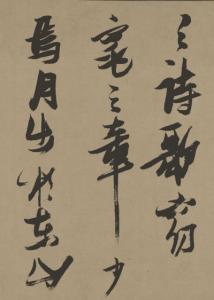 之詩歌窈
窕之章少
焉月出於東山